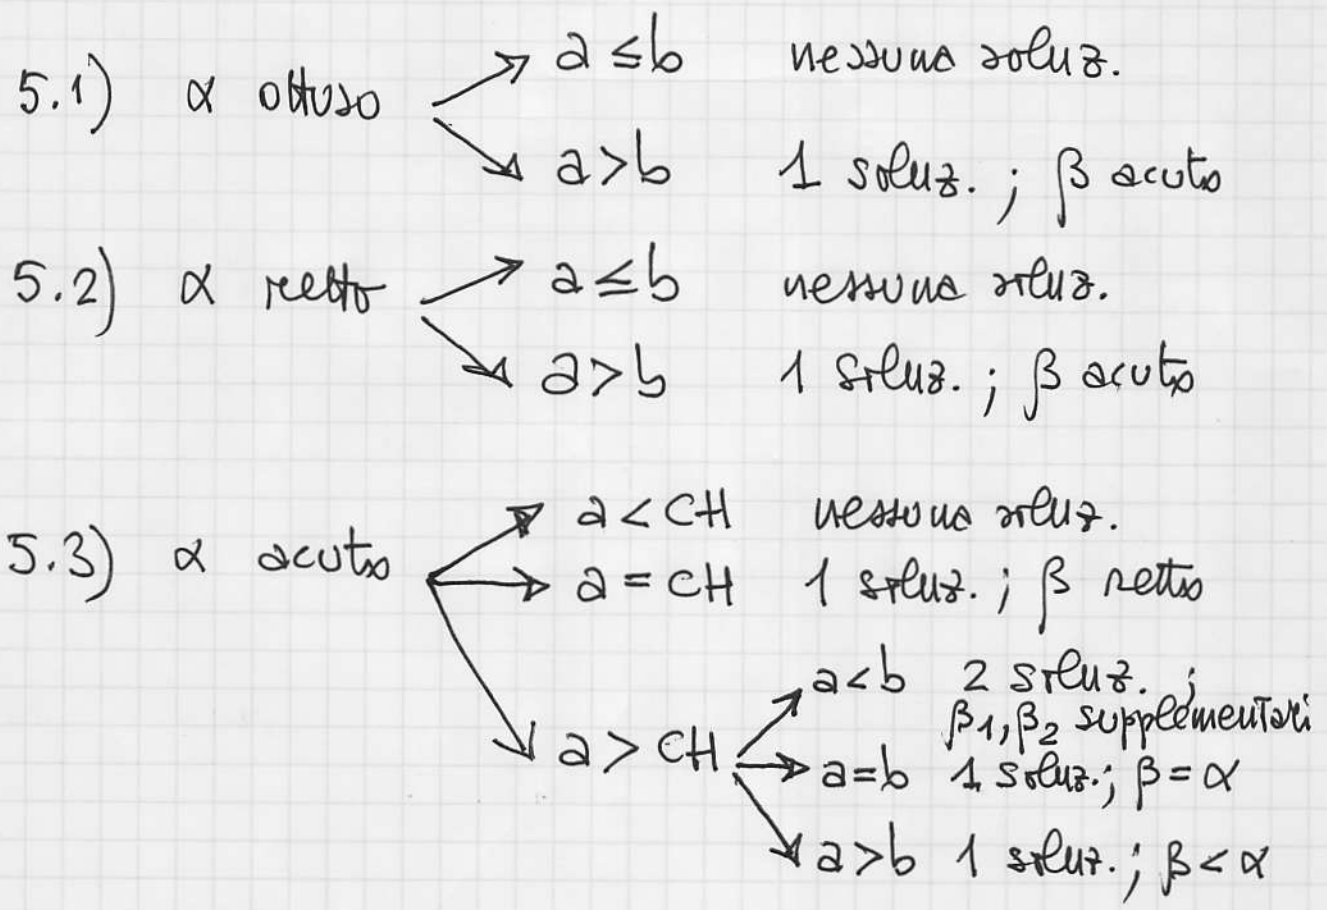 5.1) α ottuso a ≤ b nessuna soluz.
a > b 1 soluz. ; β acuto
5.2) α retto a ≤ b nessuna soluz.
a > b 1 soluz. ; β acuto
5.3) α acuto a < CH nessuna soluz.
a = CH 1 soluz. ; β retto
a > CH a < b 2 soluz. ;
β1, β2 supplementari
a = b 1 soluz. ; β = α
a > b 1 soluz. ; β < α